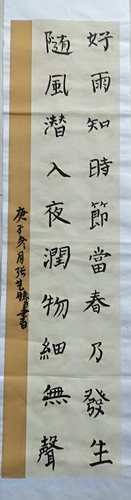 好雨知時節當春乃發生
隨風潛入夜潤物細無聲
庚子冬月張